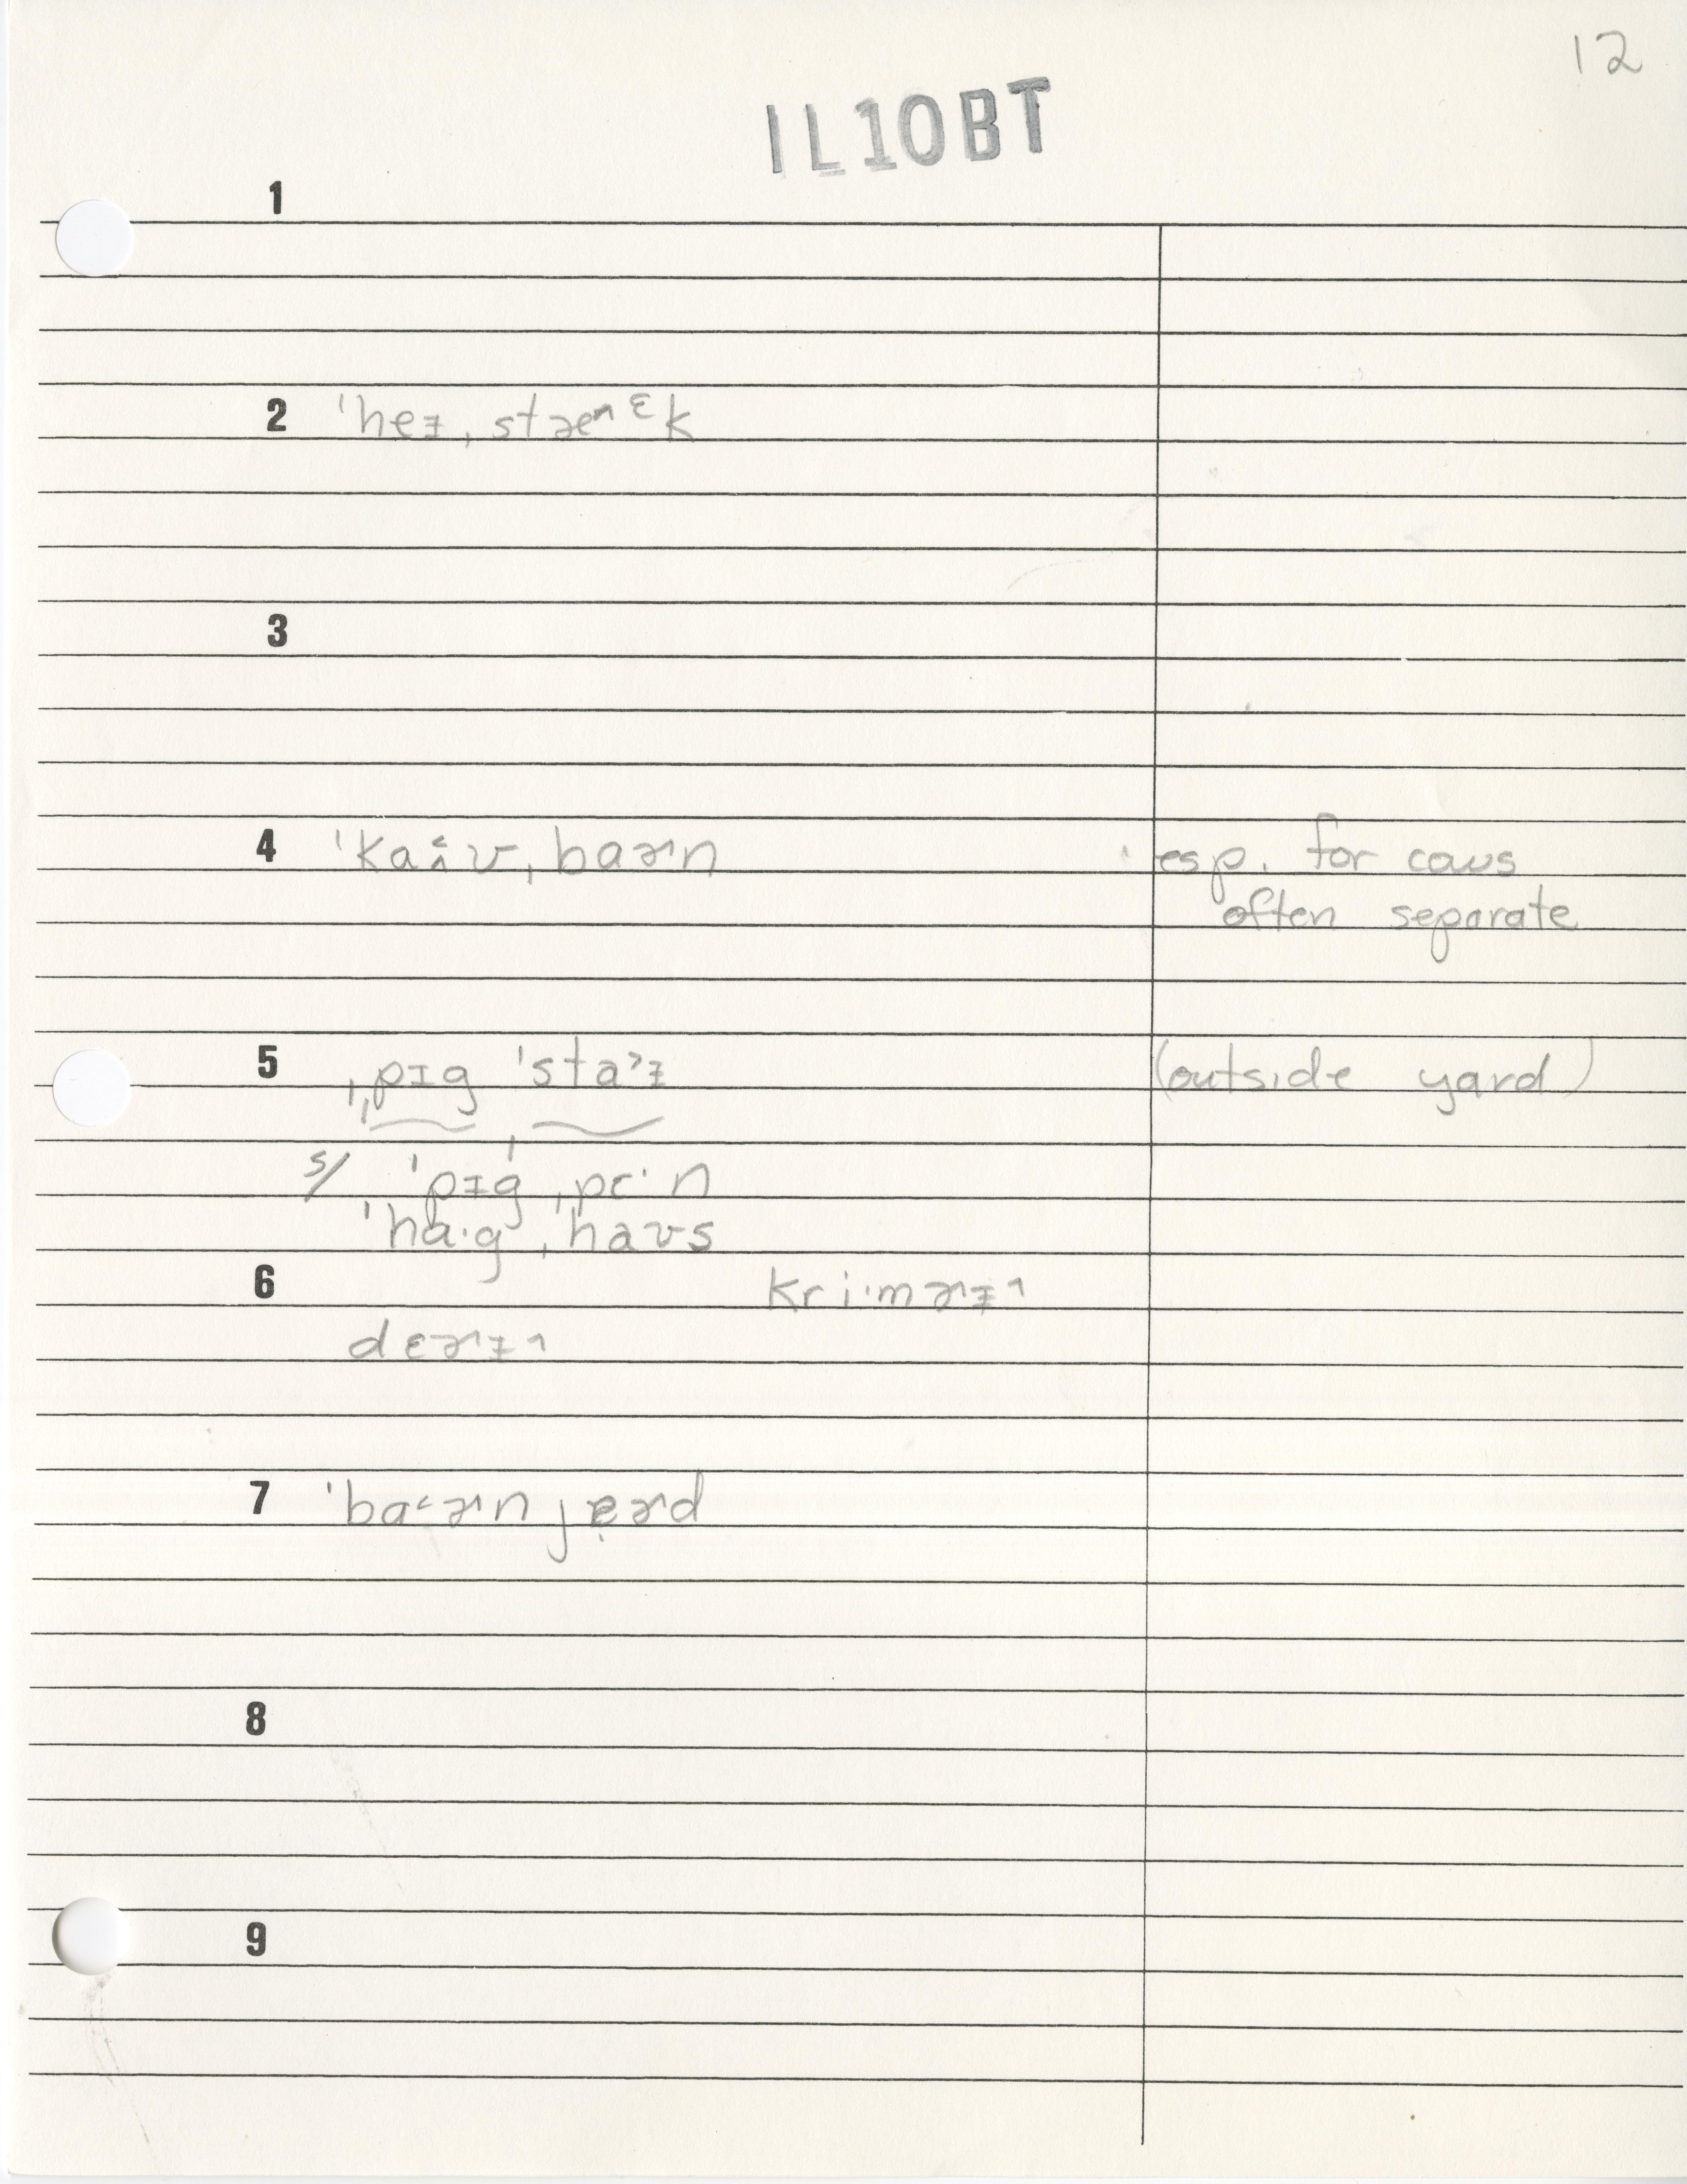 12
IL10BT
1
2 ˈheɪ̵ˌstæᵊⁿᵋk
3
4 ˈkaʊˌbaɚn esp. for cows
often separate
5 ˌpɪg ˈsta˃ɪ̵ (outside yard)
s/ ˈpɪgˌpɛˑn
ˈhɑˑgˌhaʊs
6 kriˑmɚɪ̵
dɛɚɪ̵
7 ˈba˂ɚn jɐɚd
8
9